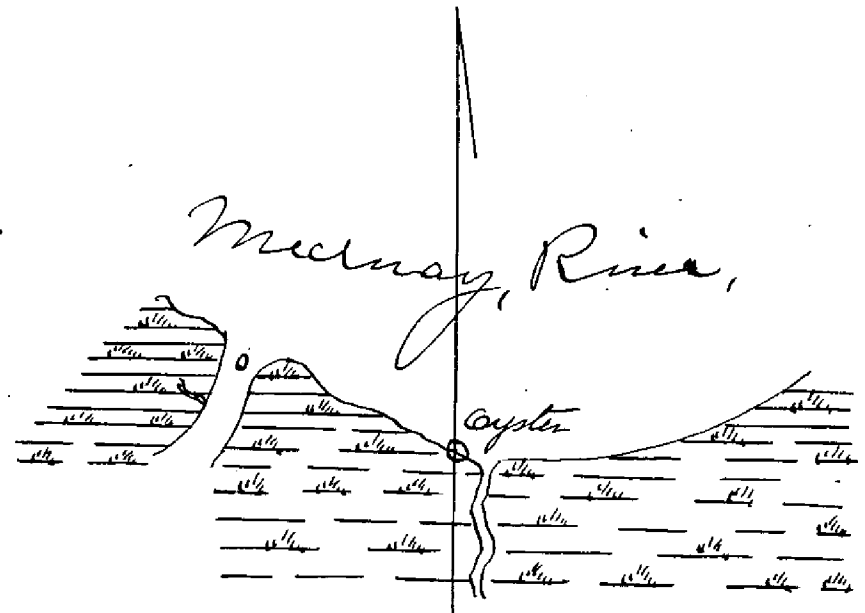 Medway, River,
Oyster